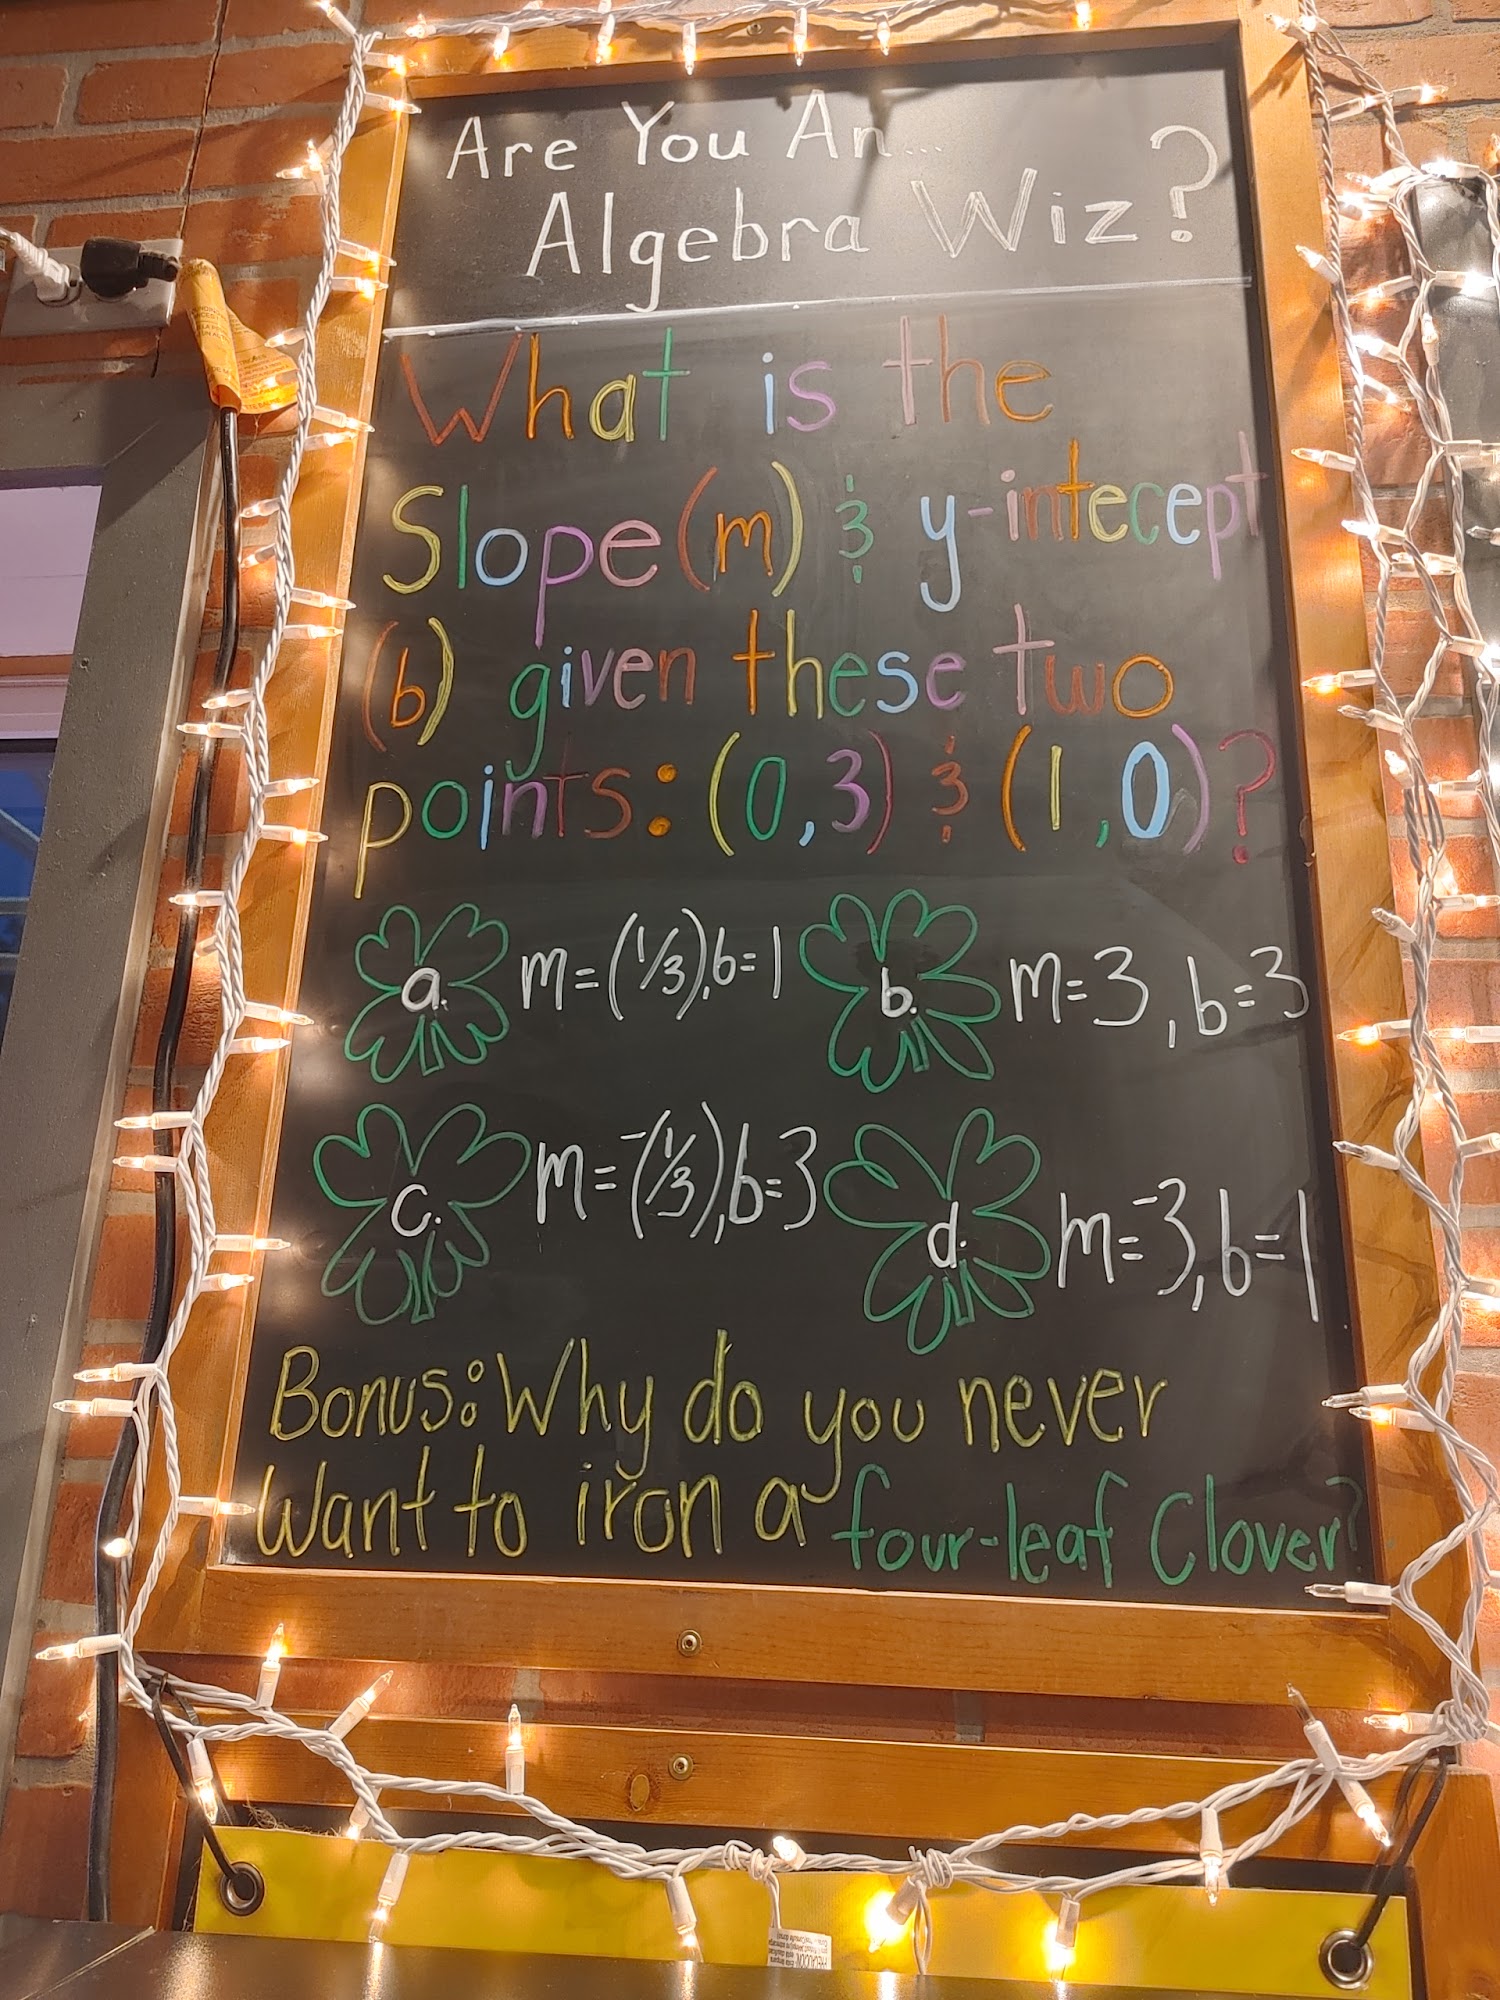 Are You An...
Algebra Wiz?
What is the
Slope (m) & y-intecept
(b) given these two
points: (0,3) & (1,0)?
a. m=(1/3), b=1 b. m=3, b=3
c. m=-(1/3), b=3 d. m=-3, b=1
Bonus: Why do you never
want to iron a four-leaf Clover?